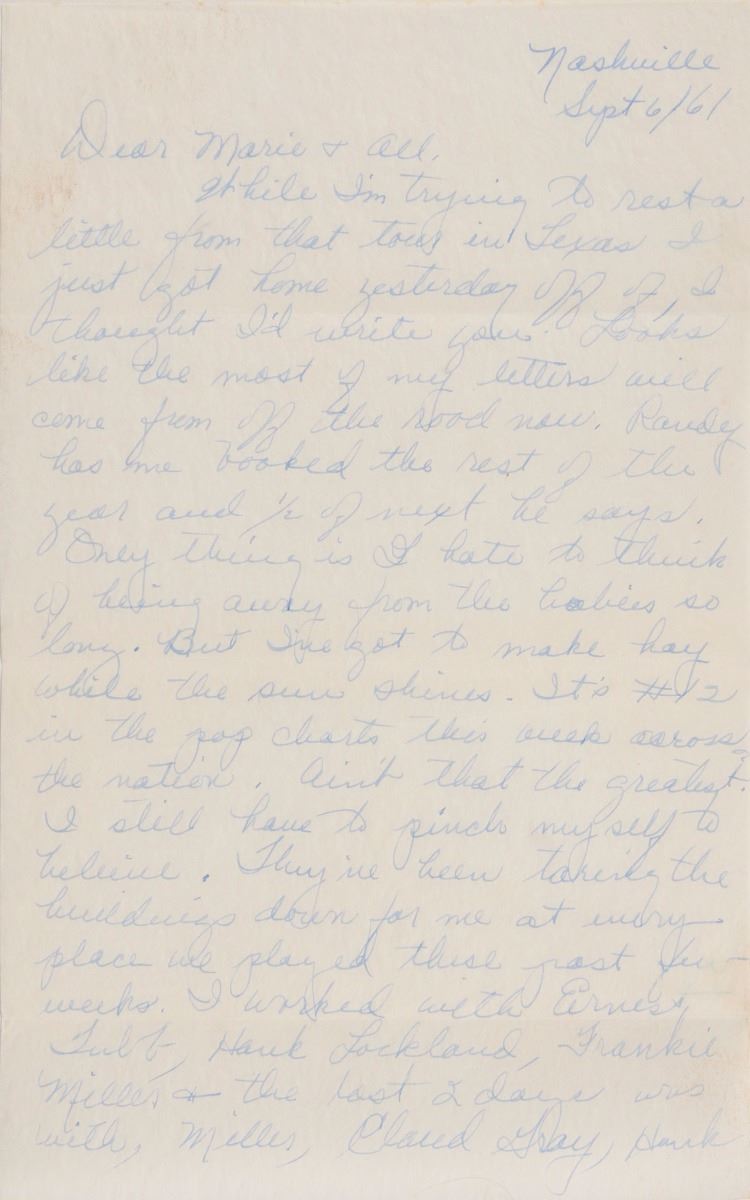 Nashville
Sept 6/61
Dear Marie & all,
While I'm trying to rest a
little from that tour in Texas I
just got home yesterday off of, I
thought I'd write you. Looks
like the most of my letters will
come from off the road now. Randy
has me booked the rest of the
year and 1/2 of next he says.
Only thing is I hate to think
of being away from the babies so
long. But I've got to make hay
while the sun shines. It's #12
in the pop charts this week across
the nation. Ain't that the greatest.
I still have to pinch myself to
believe. They've been taring the
buildings down for me at every
place we played these past few
weeks. I worked with Ernest
Tubb, Hank Lockland, Frankie
Miller & the last 2 days was
with, Miller, Claud Gray, Hank